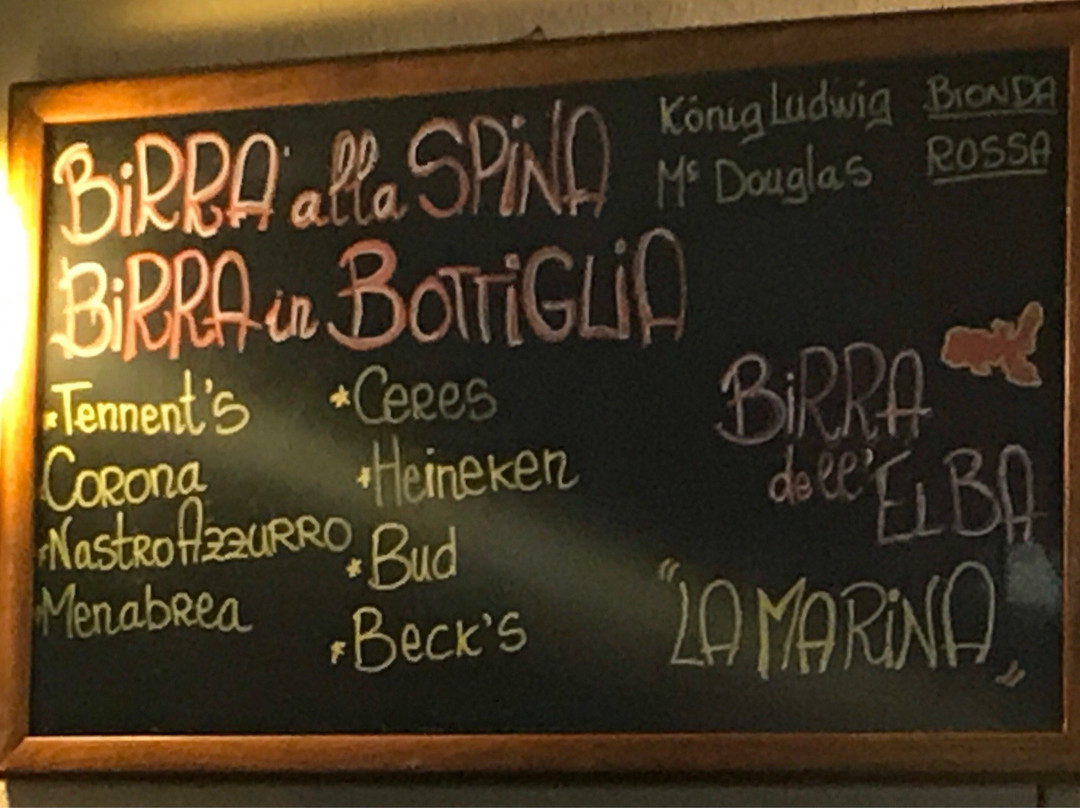 BiRRA alla SPiNA
König Ludwig BIONDA
Mc Douglas ROSSA
BiRRA in BOTTiGLiA
*Tennent's
Corona
*Nastro Azzurro
*Menabrea
*Ceres
*Heineken
*Bud
*Beck's
BiRRA
dell' ELBA
"LA MARiNA"